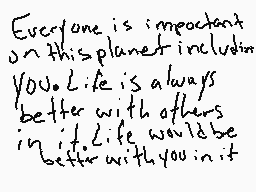 Everyone is important
on this planet includin
you. Life is always
better with others
in it. Life would be
better with you in it